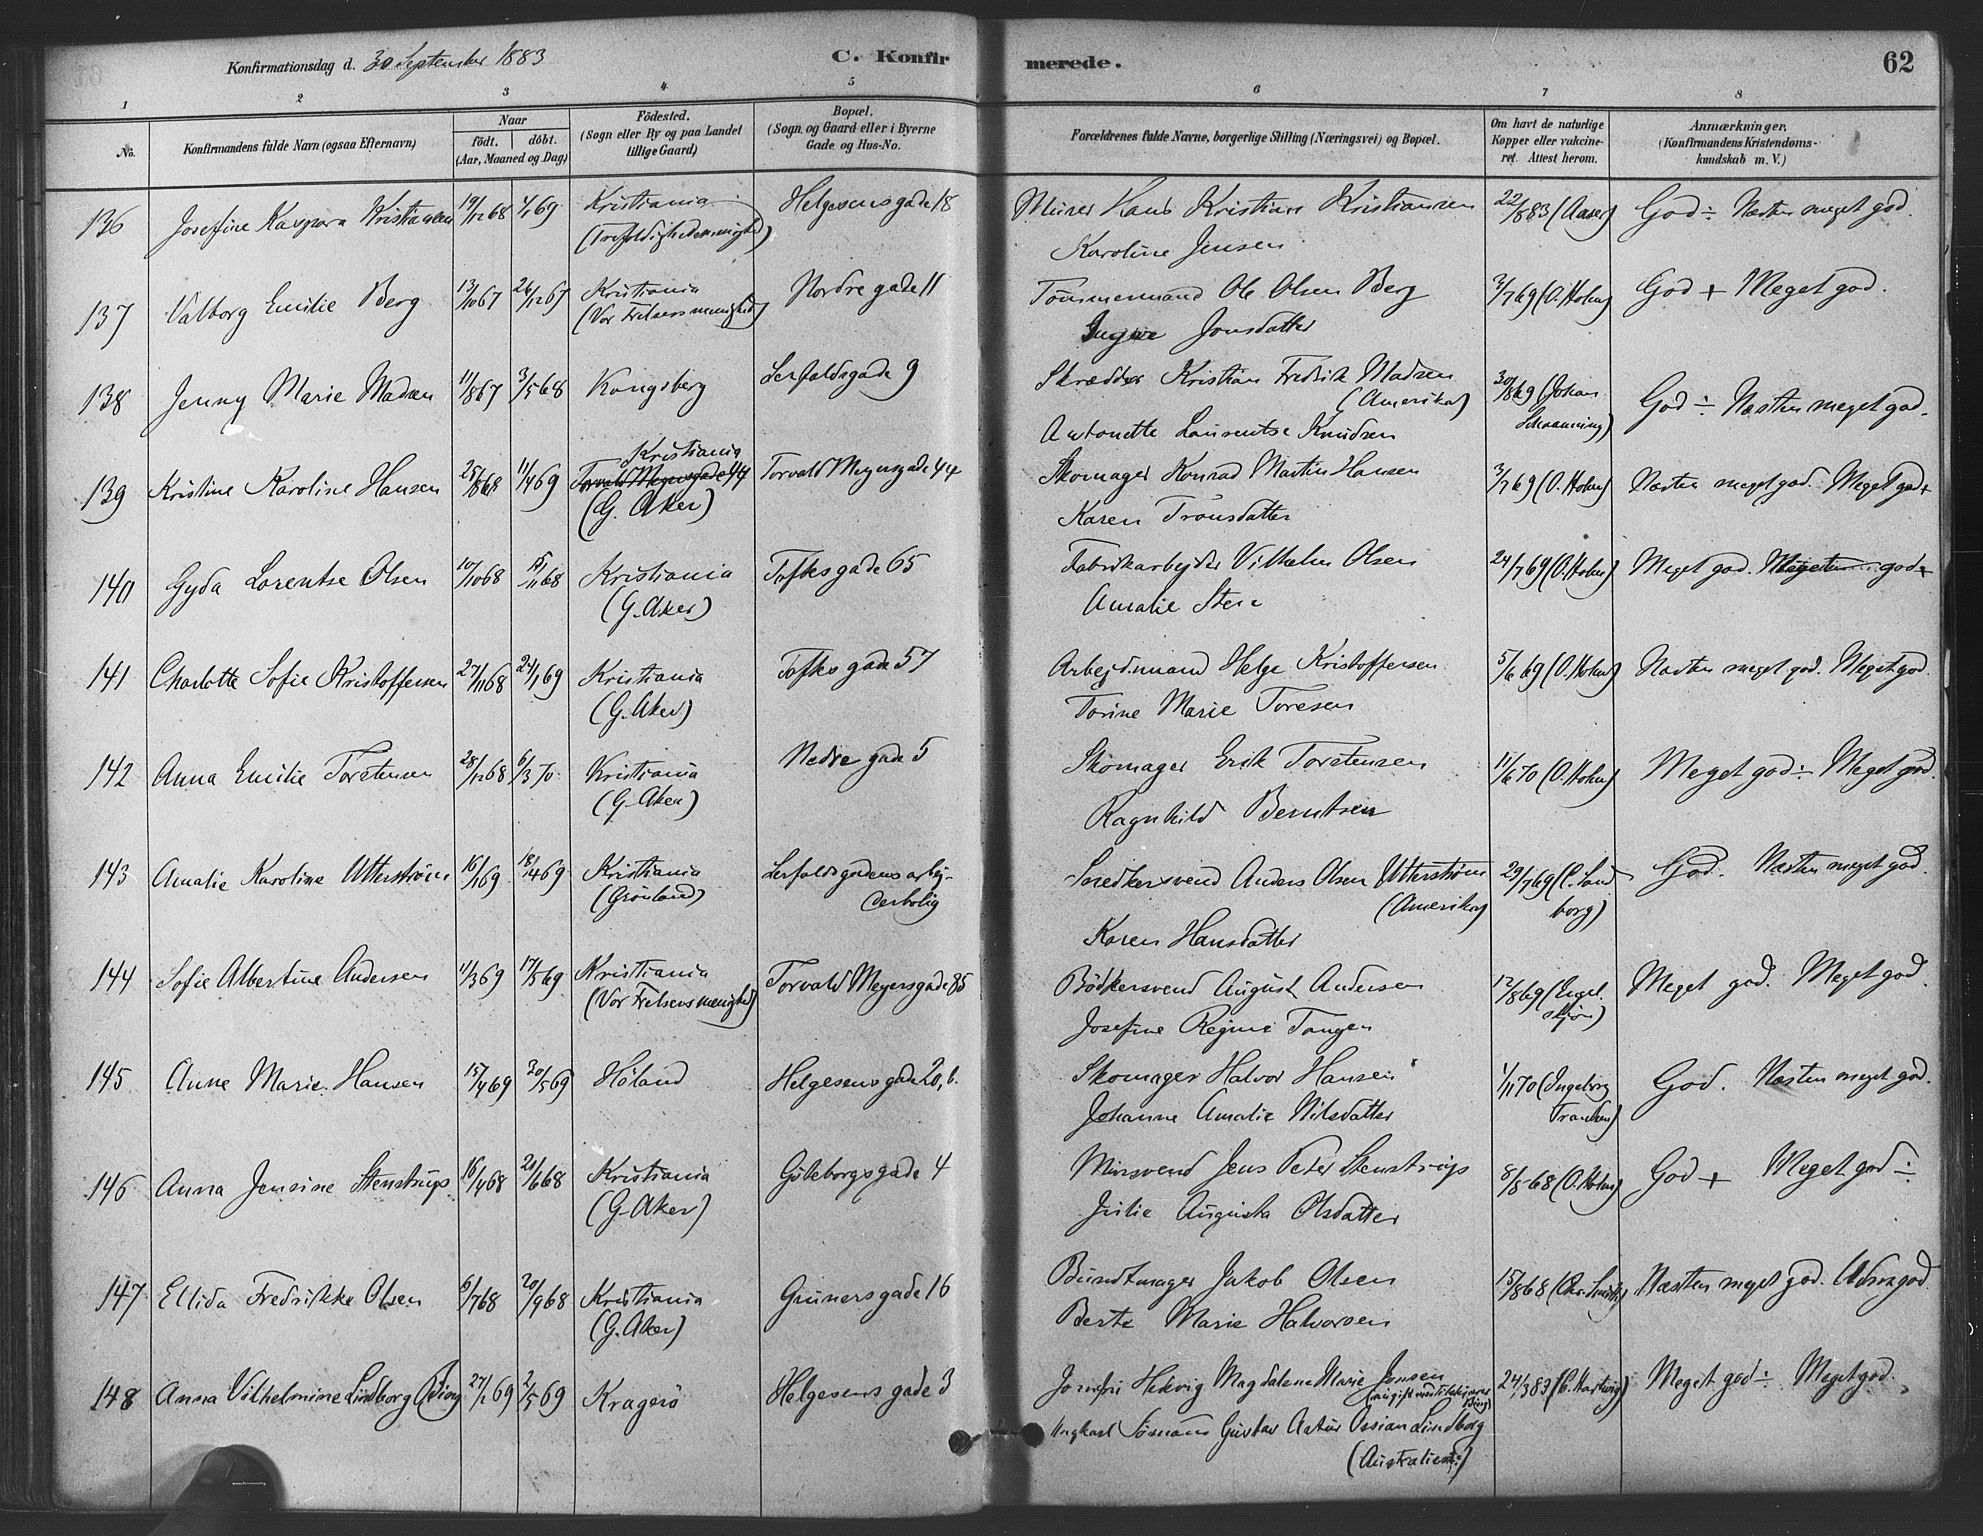 Konfirmationsdag d. 30 September 1883 C. Konfirmerede. 62
1 2 3 4 5 6 7 8
No. Konfirmandens fulde Navn (ogsaa Efternavn) Naar født. døbt. (Aar, Maaned og Dag) Födested. (Sogn eller By og paa Landet tillige Gaard) Bopæl. (Sogn og Gaard eller i Byerne Gade og Hus-No. Forældrenes fulde Navne, borgerlige Stilling (Næringsvei) og Bopæl. Om havt de naturlige Kopper eller vakcineret. Attest herom. Anmærkninger. (Konfirmandens Kristendomskundskab m. V.)
136 Josefine Kaspara Kristiansen 19/12 68 4/1 69 Kristiania (Trefoldighedsmenighed) Helgesensgade 18 Murer Hans Kristian Kristiansen 22/8 83 (Aaser) God ÷ Næsten meget god.
Karoline Jensen
137 Valborg Emilie Berg 13/10 67 26/12 67 Kristiania (Vor Frelsers menighed) Nordregade 11 Tömmermand Ole Olsen Berg 3/7 69 (O. Holm) God + Meget god.
Jonsdatter
138 Jenny Marie Madsen 11/8 67 3/5 68 Kongsberg Lerfaldsgade 9 Skrædder Kristian Fredrik Madsen (Amerika) 30/8 69 (Johan Schaanning) God ÷ Næsten meget god.
Antonette Laurentse Knudsen
139 Kristine Karoline Hansen 25/8 68 11/4 69 Kristiania Torvald Meyersgade 44 (G. Aker) Torvald Meyersgade 44 Skomager Konrad Martin Hansen 3/7 69 (O. Holm) Næsten meget god. Meget god +
Karen Trönsdatter
140 Gyda Lorentse Olsen 10/10 68 /11 68 Kristiania (G. Aker) Toftesgade 65 Fabrikarbejder Vilhelm Olsen 24/7 69 (O. Holm) Meget god. god +
Amalie Sten
141 Charlotte Sofie Kristoffersen 27/11 68 24/1 69 Kristiania (G. Aker) Toftesgade 57 Arbejdsmand Helge Kristoffersen 5/6 69 (O. Holm) Næsten meget god. Meget god.
Torine Marie Toresen
142 Anna Emilie Torstensen 28/12 68 6/3 70 Kristiania (G. Aker) Nedre gade 5 Skomager Erik Torstensen 11/6 70 (O. Holm) Meget god ÷ Meget god.
Ragnhild Berntsen
143 Amalie Karoline Utterström 16/1 69 18/4 69 Kristiania (Grönland) Lerfaldsgadens arbejderbolig Snedkersvend Anders Olsen Utterström (Amerika) 29/7 69 (C. Sandborg) God. Næsten meget god.
Karen Hansdatter
144 Sofie Albertine Andersen 11/3 69 17/5 69 Kristiania (Vor Frelsers menighed) Torvald Meyersgade 85 Bödkersvend August Andersen 12/8 69 (Engelskjön) Meget god. Meget god.
Josefine Regine Tangen
145 Anne Marie Hansen 15/4 69 30/5 69 Höland Helgesensgade 20, b. Skomager Halvor Hansen 1/11 70 (Ingeborg Trandsen) God. Næsten meget god.
Johanne Amalie Nilsdatter
146 Anna Jensine Stenstrup 16/4 68 20/6 68 Kristiania (G. Aker) Göteborgsgade 4 Mursvend Jens Peter Stenstrup 8/5 68 (O. Holm) God + Meget god ÷
Julie Augusta Olsdatter
147 Ellida Fredrikke Olsen 6/7 68 20/9 68 Kristiania (G. Aker) Grunersgade 16 Bundtmager Jakob Olsen 15/8 68 (Chr. Smith) Næsten meget god. Udm. god
Berte Marie Halvorsen
148 Anna Vilhelmine Lindborg (Bing) 27/1 69 2/5 69 Kragerö Helgesens gade 3 Jomfru Hedvig Magdalene Marie Jensen 24/3 83 (C. Hartvig) Meget god ÷ Meget god.
Ungkarl Sömand Gustav Artur Ossian Lindborg
(Australien)